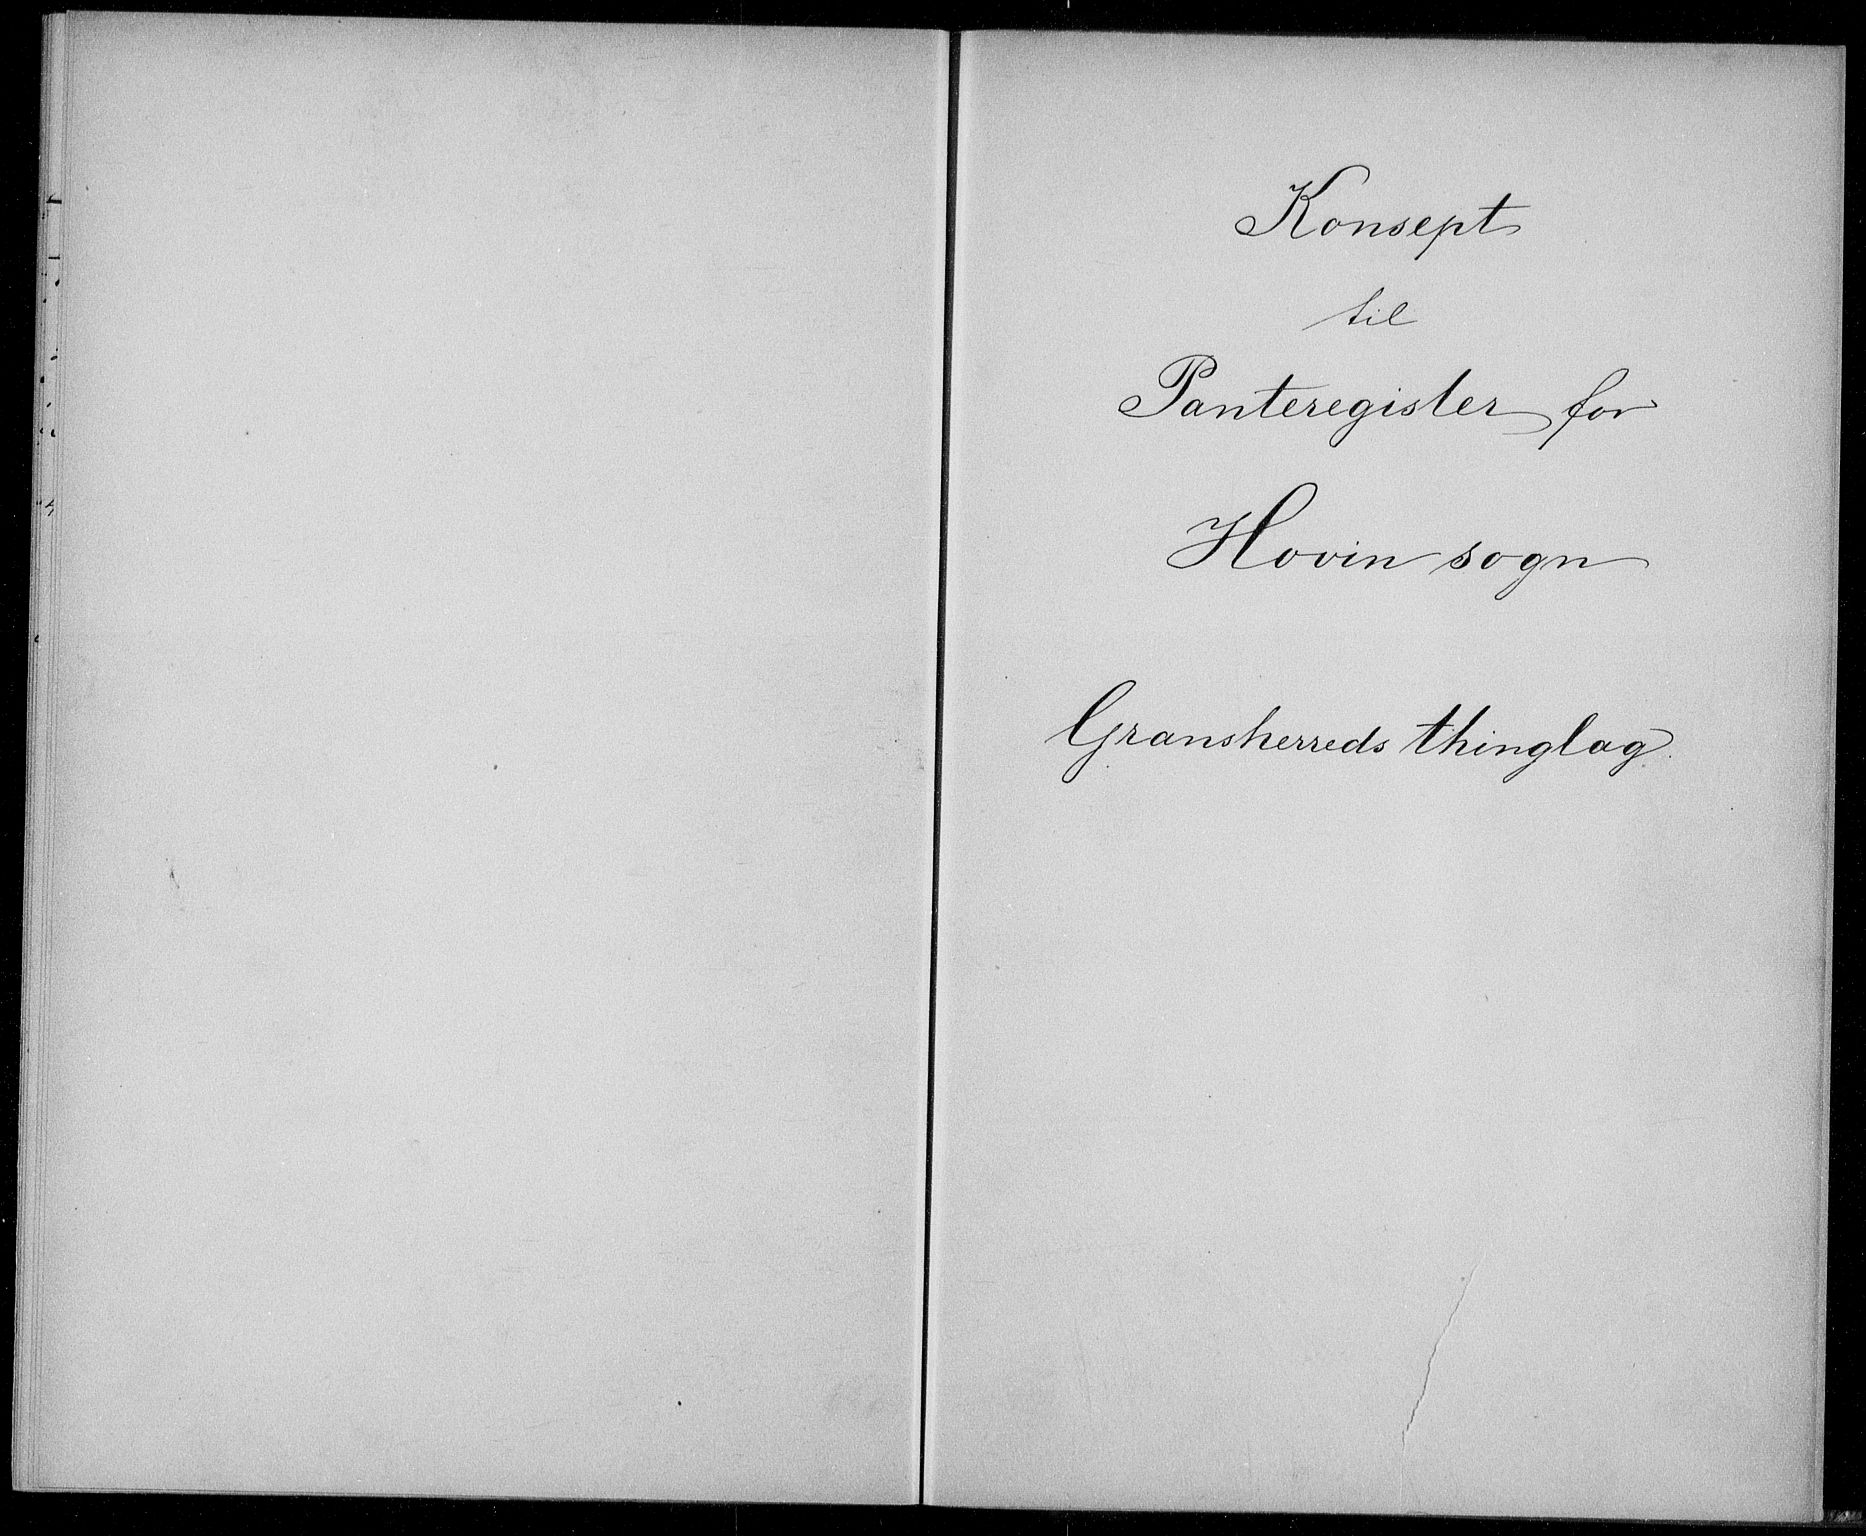 Konsept
til
Panteregister for
Hovin sogn
Gransherreds thinglag.